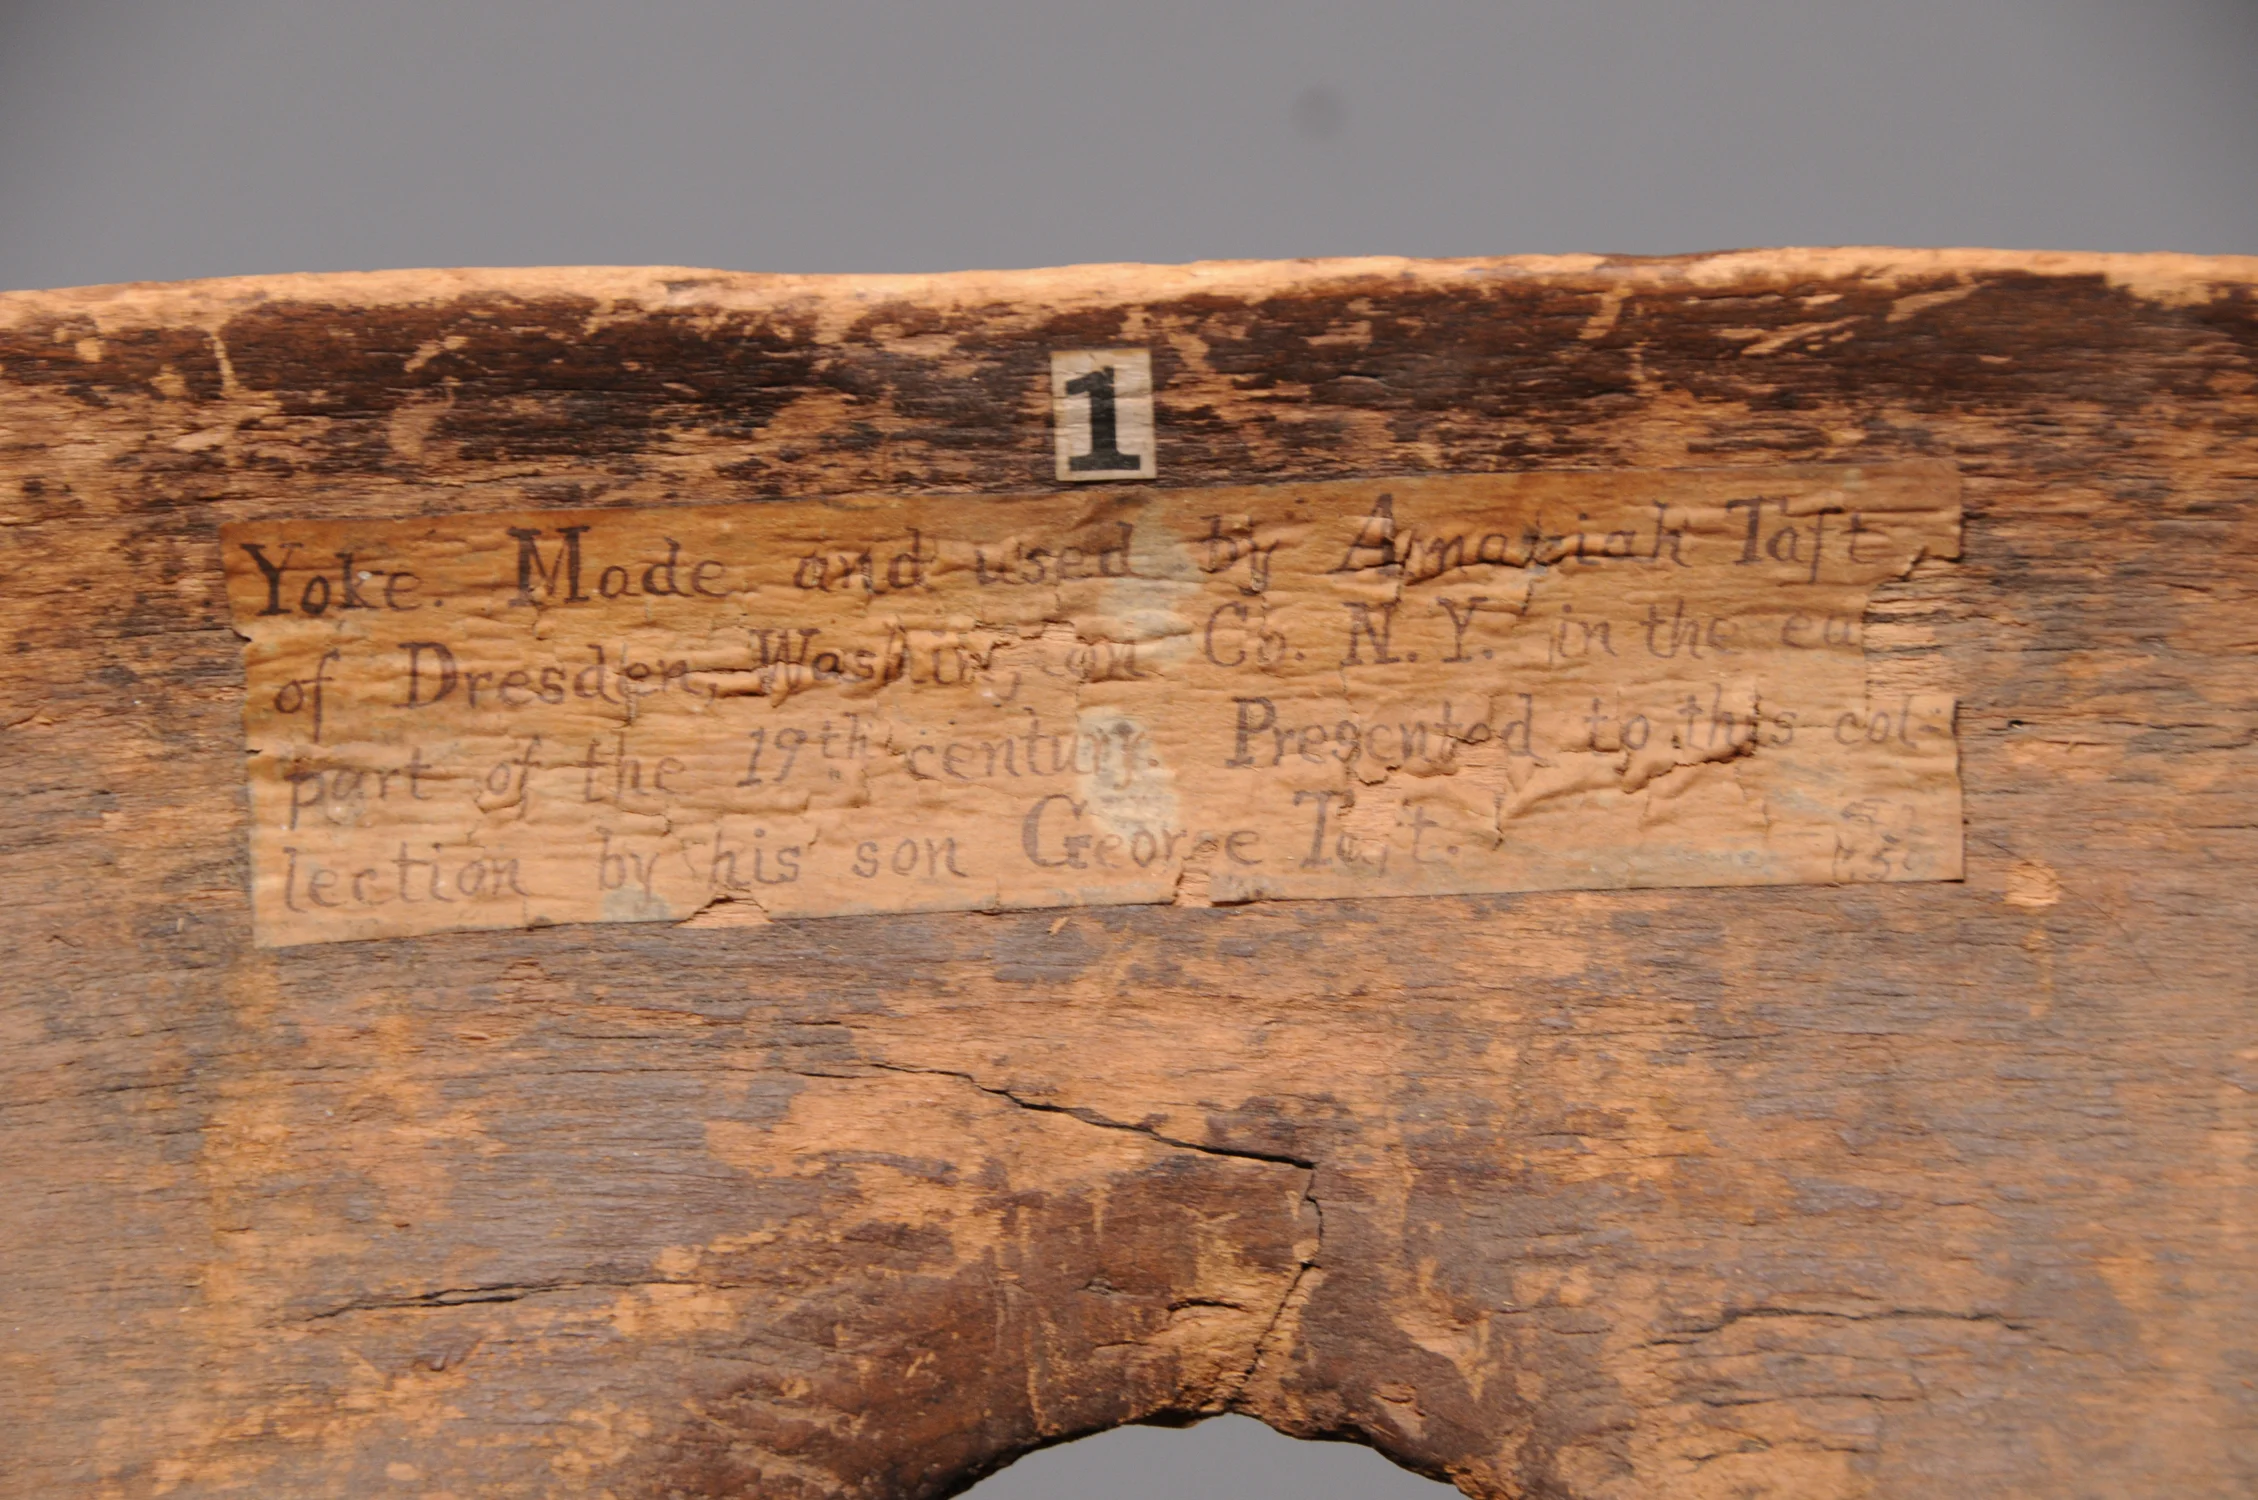 1
Yoke. Made and used by Amaziah Taft
of Dresden, Washington Co. N.Y. in the
part of the 19th century. Presented to this col-
lection by his son George Taft.